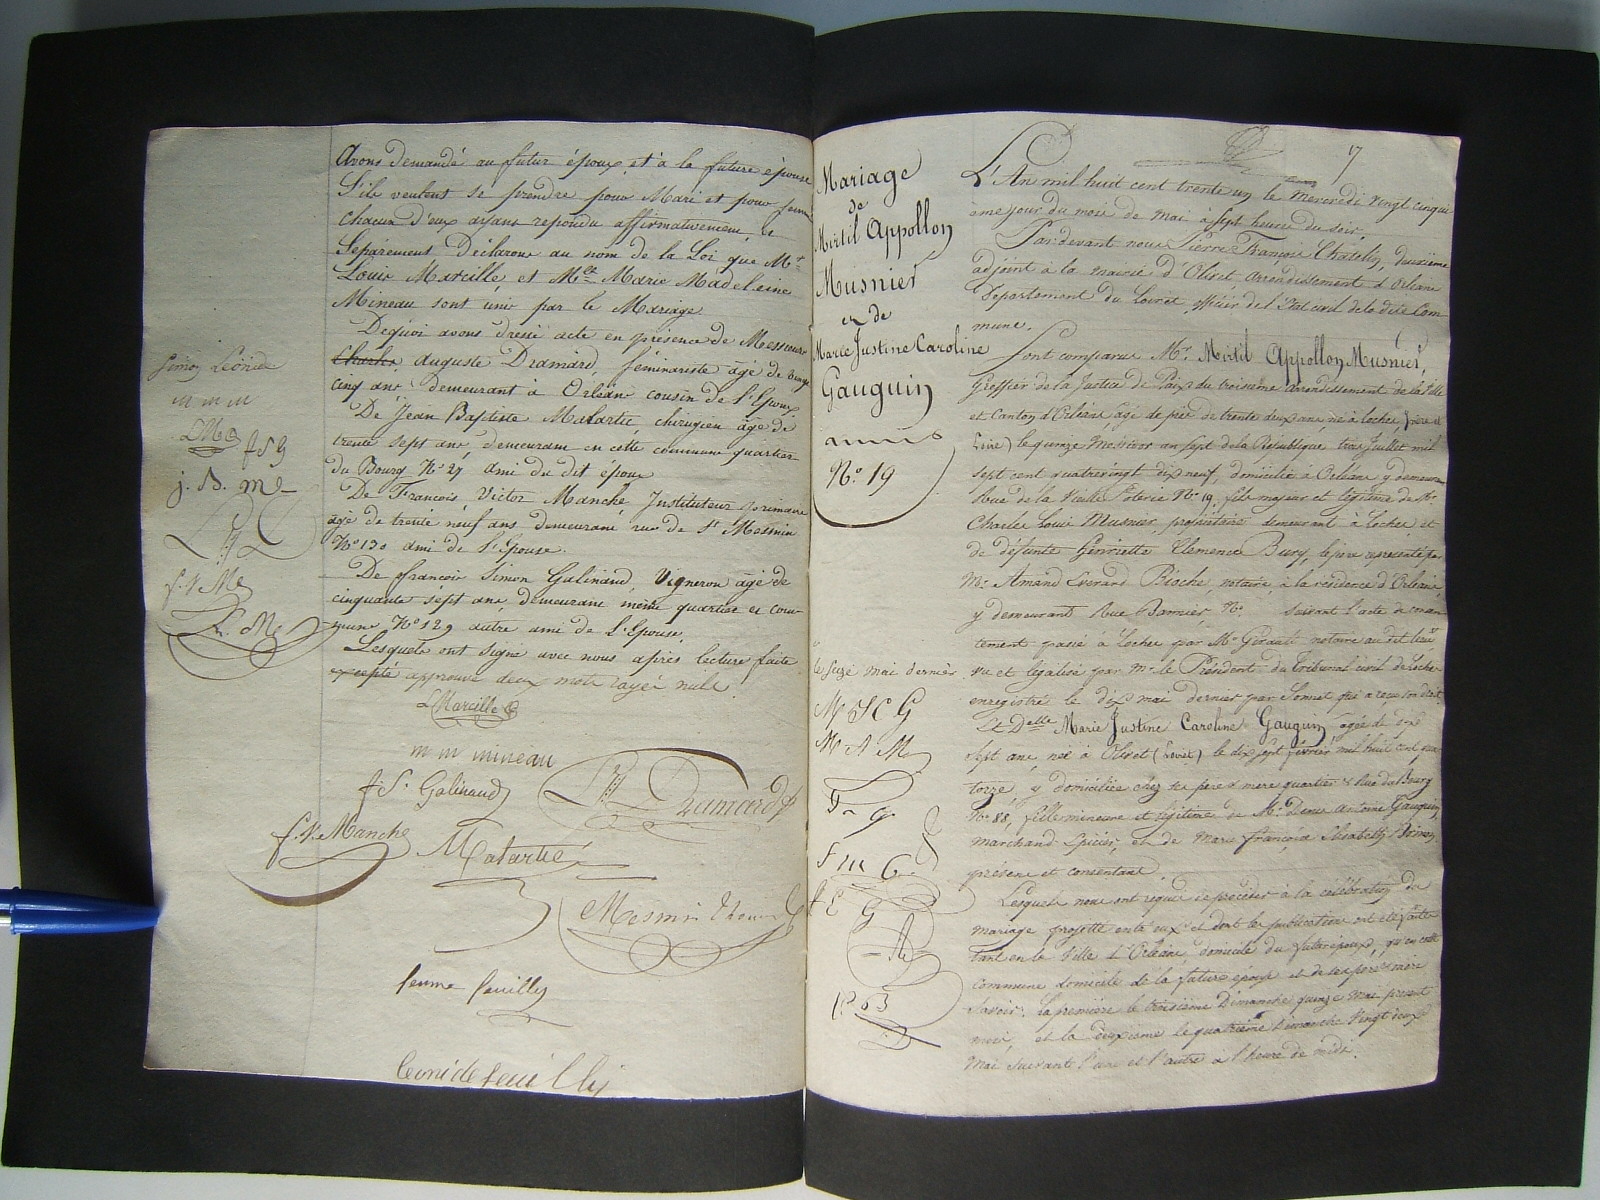 Avons demandé au futur époux et à la future épouse
S'ils veulent se prendre pour Mari et pour femme
chacun d'eux ayans repondu affirmativement et
Séparément Déclarons au nom de la Loi que Mr.
Louis Marcille, et Melle Marie Madeleine
Mineau sont unis par le Mariage
Dequoi avons dressé acte en présence de Messieurs
Charles Auguste Dramard, Séminariste agé de Vingt
Cinq ans demeurant à Orléans cousin de l'Epoux
De Jean Baptiste Malartic, chirugien agé de
trente sept ans, demeurant en cette commune quartier
du Bourg No. 27 ami du dit époux
De François Victor Manche Instituteur primaire
agé de trente neuf ans demeurant rue de St. Mesmin
No. 130 ami de l'Epouse.
De françois Simon Galinaud, Vigneron agé de
cinquante sept ans, demeurant même quartier et com-
mune No. 129 autre ami de l'Epouse.
Lesquels ont signé avec nous après lecture faite
excepté approuvé deux mots rayés nuls.
LMarcille
m m mineau
f. S. Galinaud
Dramard
f. V. Manche
Malartic
Mesmin
femme feuilles
Simon Léonide
m m m
LM
f S G
j. B. m
f. V. M
17
Mariage
de
Mirtil Appollon
Musnier
et de
Marie Justine Caroline
Gauguin
No. 19
L'An mil huit cent trente un le Mercredi Vingt cinqui
ème jour du mois de Mai à Sept heures du soir,
Par devant nous Pierre François Chatelin, deuxième
adjoint à la mairie d'Olivet arrondissement d'Orléans
Département du Loiret, officier de l'Etat civil de la dite Com
mune.
Sont comparus Mr. Mirtil Appollon Musnier,
Greffier de la Justice de Paix du troisième arrondissement de la Ville
et Canton d'Orléans, agé de près de trente deux ans, né à Loches (Indre et
Loire) le quinze Messidor an Sept de la République trois Juillet mil
sept cent quatrevingt dix neuf, domicilié à Orléans y demeurant
Rue de la Vieille Poterie No. 19, fils majeur et légitime de Mr.
Charles Louis Musnier propriétaire demeurant à Loches et
de défunte Henriette Clemence Bury, le père représenté par
Mr. Amand Everard Bioche, notaire, à la résidence d'Orléans
y demeurant Rue Bannier, No. suivant l'acte de consen
tement passé à Loches par Me. Girault notaire au dit lieu
le seize mai dernier
vu et légalisé par Mr. le Président du Tribunal civil de Loches
enregistré le dix mai dernier par
Et Delle Marie Justine Caroline Gauguin, agée de dix
sept ans, née à Olivet (Loiret) le dix sept février mil huit cent qua
torze, y domiciliée chez ses père et mère quartier et Rue du Bourg
No. 88, fille mineure et légitime de Mr. Denis Antoine Gauguin
marchand Epicier, et de Marie françoise Elisabeth
présens et consentans.
Lesquels nous ont requis de procéder à la célébration du
mariage projetté entr'eux et dont les publications ont été faites
tant en la Ville d'Orléans, domicile du futur époux, qu'en cette
commune domicile de la future épouse et de ses père et mère
Savoir: la première le troisième Dimanche quinze Mai présent
mois, et la deuxième le quatrième Dimanche Vingt deux
Mai suivant l'une et l'autre à l'heure de midi.
M J C G
M A M
F m G